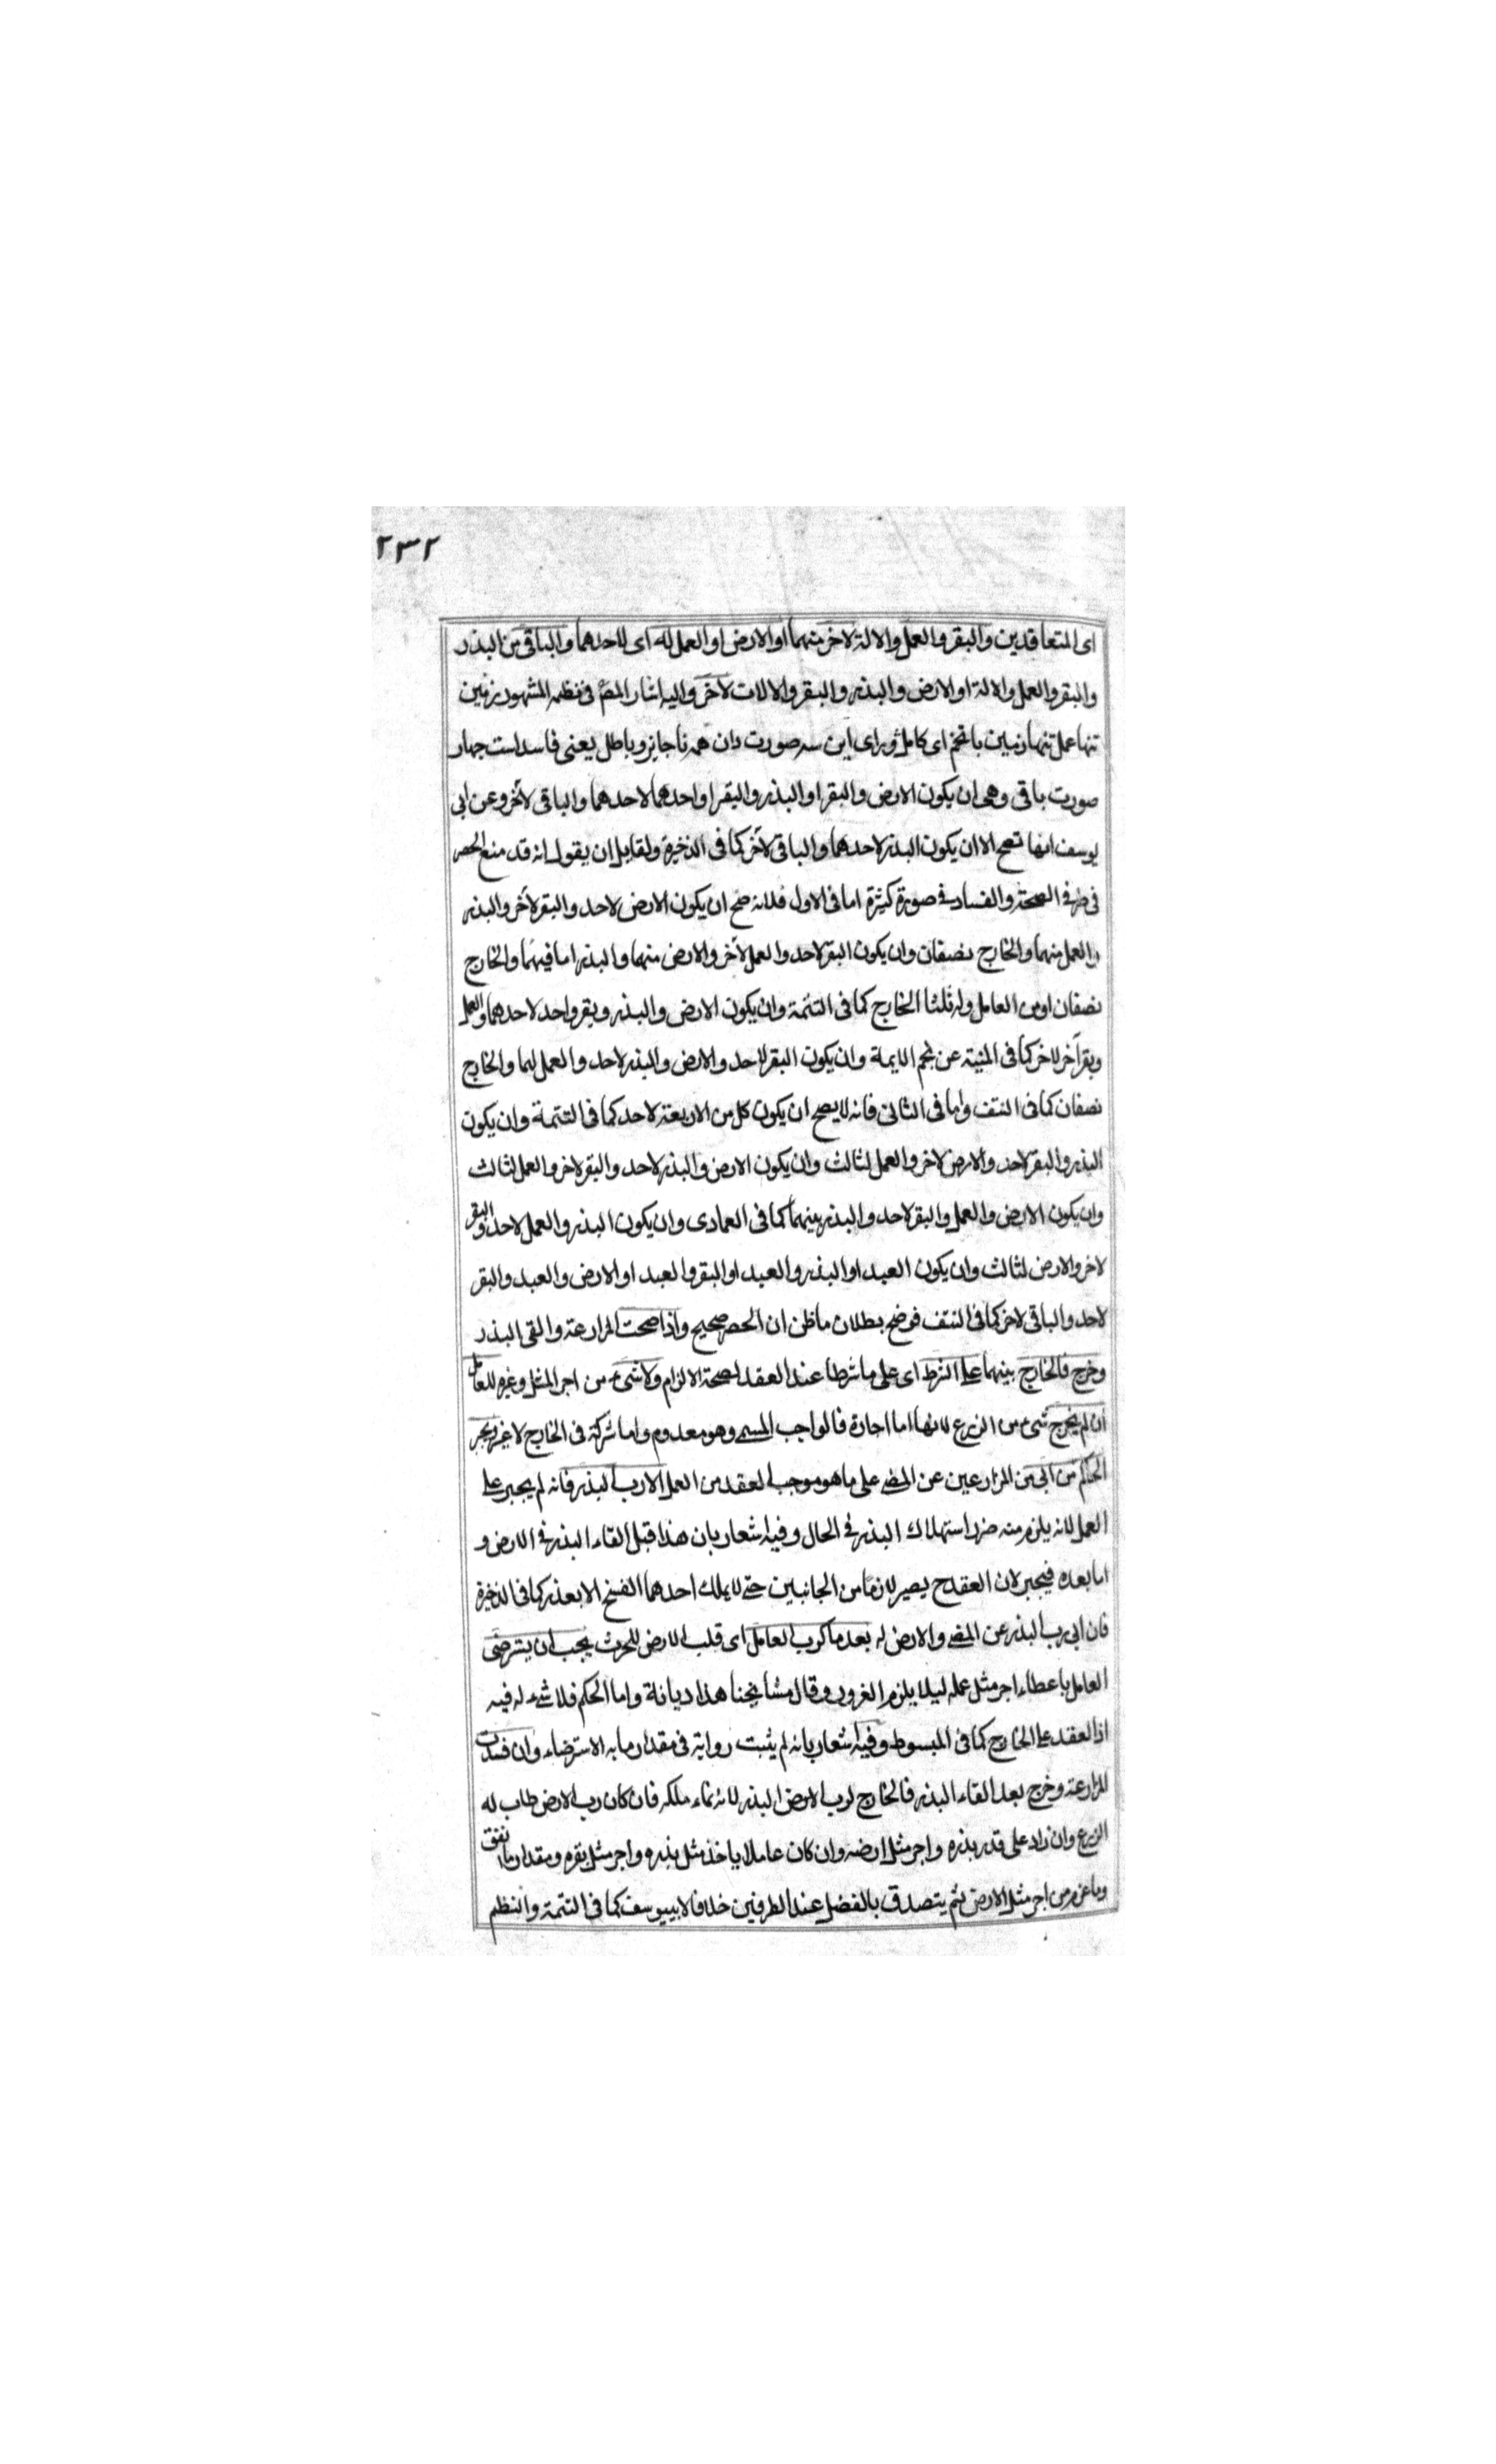 ٢٣٢
اى المتعاقدين والبقر والعمل والالة لاخر منهما او الارض او العمل له اى لاحدهما والباقى من البذر
والبقر والعمل والالة او الارض والبذر والبقر والالات لاخر واليه اشار المص فى نظمه المشهور زمين
تنها عمل تنها زمين باتخم اى كامل وراى اين سه صورت دان همه ناجايز وباطل يعنى فاسد است چهار
صورت باقى وهى ان يكون الارض والبقر او البذر والبقر او احدهما لاحدهما والباقى لآخر وعن ابى
يوسف انها تصح الا ان يكون البذر لاحدهما والباقى لآخر كما فى الذخيرة ولقايل ان يقول انه قد منع الحصر
فى طرفى الصحة والفساد فى صورة كثيرة اما فى الاول فلانه صح ان يكون الارض لاحد والبقر لآخر والبذر
والعمل منهما والخارج نصفان وان يكون البقر لاحد والعمل لآخر والارض منهما والبذر اما فيهما والخارج
نصفان او من العامل وله ثلثا الخارج كما فى التتمة وان يكون الارض والبذر وبقر واحد لاحدهما والعمل
وبقر آخر لاخر كما فى المنية عن نجم الايمة وان يكون البقر لاحد والارض والبذر لاحد والعمل لهما والخارج
نصفان كما فى النتف واما فى الثانى فانه لا يصح ان يكون كل من الاربعة لاحد كما فى التتمة وان يكون
البذر والبقر لاحد والارض لاخر والعمل لثالث وان يكون الارض والبذر لاحد والبقر لاخر والعمل لثالث
وان يكون الارض والعمل والبقر لاحد والبذر بينهما كما فى العمادى وان يكون البذر والعمل لاحد والبقر
لاخر والارض لثالث وان يكون العبد او البذر والعبد او البقر والعبد او الارض والعبد والبقر
لاحد والباقى لاخر كما فى النتف فوضح بطلان ما ظن ان الحصر صحيح واذا صحت المزارعة والقى البذر
وخرج فالخارج بينهما على الشرط اى على ما شرطا عند العقد لصحة الالزام ولا شىء من اجر المثل وغيره للعامل
ان لم يخرج شىء من الزرع لانها اما اجارة فالواجب المسمى وهو معدوم واما شركة فى الخارج لا غير ويجبر
الحاكم من ابى من المزارعين عن المضى على ما هو موجب العقد من العمل الا رب البذر فانه لم يجبر على
العمل لانه يلزم منه ضرر استهلاك البذر فى الحال وفيه اشعار بان هذا قبل القاء البذر فى الارض و
اما بعده فيجبر لان العقد ح يصير لازما من الجانبين حتى لا يملك احدهما الفسخ الا بعذر كما فى الذخيرة
فان ابى رب البذر عن المضى والارض له بعد ما كرب العامل اى قلب الارض للحرث يجب ان يسترضى
العامل باعطاء اجر مثل عمله ليلا يلزم الغرور وقال مشايخنا هذا ديانة واما الحكم فلا شىء له فيه
اذ العقد على الخارج كما فى المبسوط وفيه اشعار بانه لم يثبت رواية فى مقدار ما به الاسترضاء وان فسدت
المزارعة وخرج بعد القاء البذر فالخارج لرب الارض البذر لانه نماء ملكه فان كان رب الارض طاب له
الزرع وان زاد على قدر بذره واجر مثل ارضه وان كان عاملا ياخذ مثل بذره واجر مثل بقره ومقدار ما انفق
وما غرم من اجر مثل الارض ثم يتصدق بالفضل عند الطرفين خلافا لابييوسف كما فى التتمة والنظم